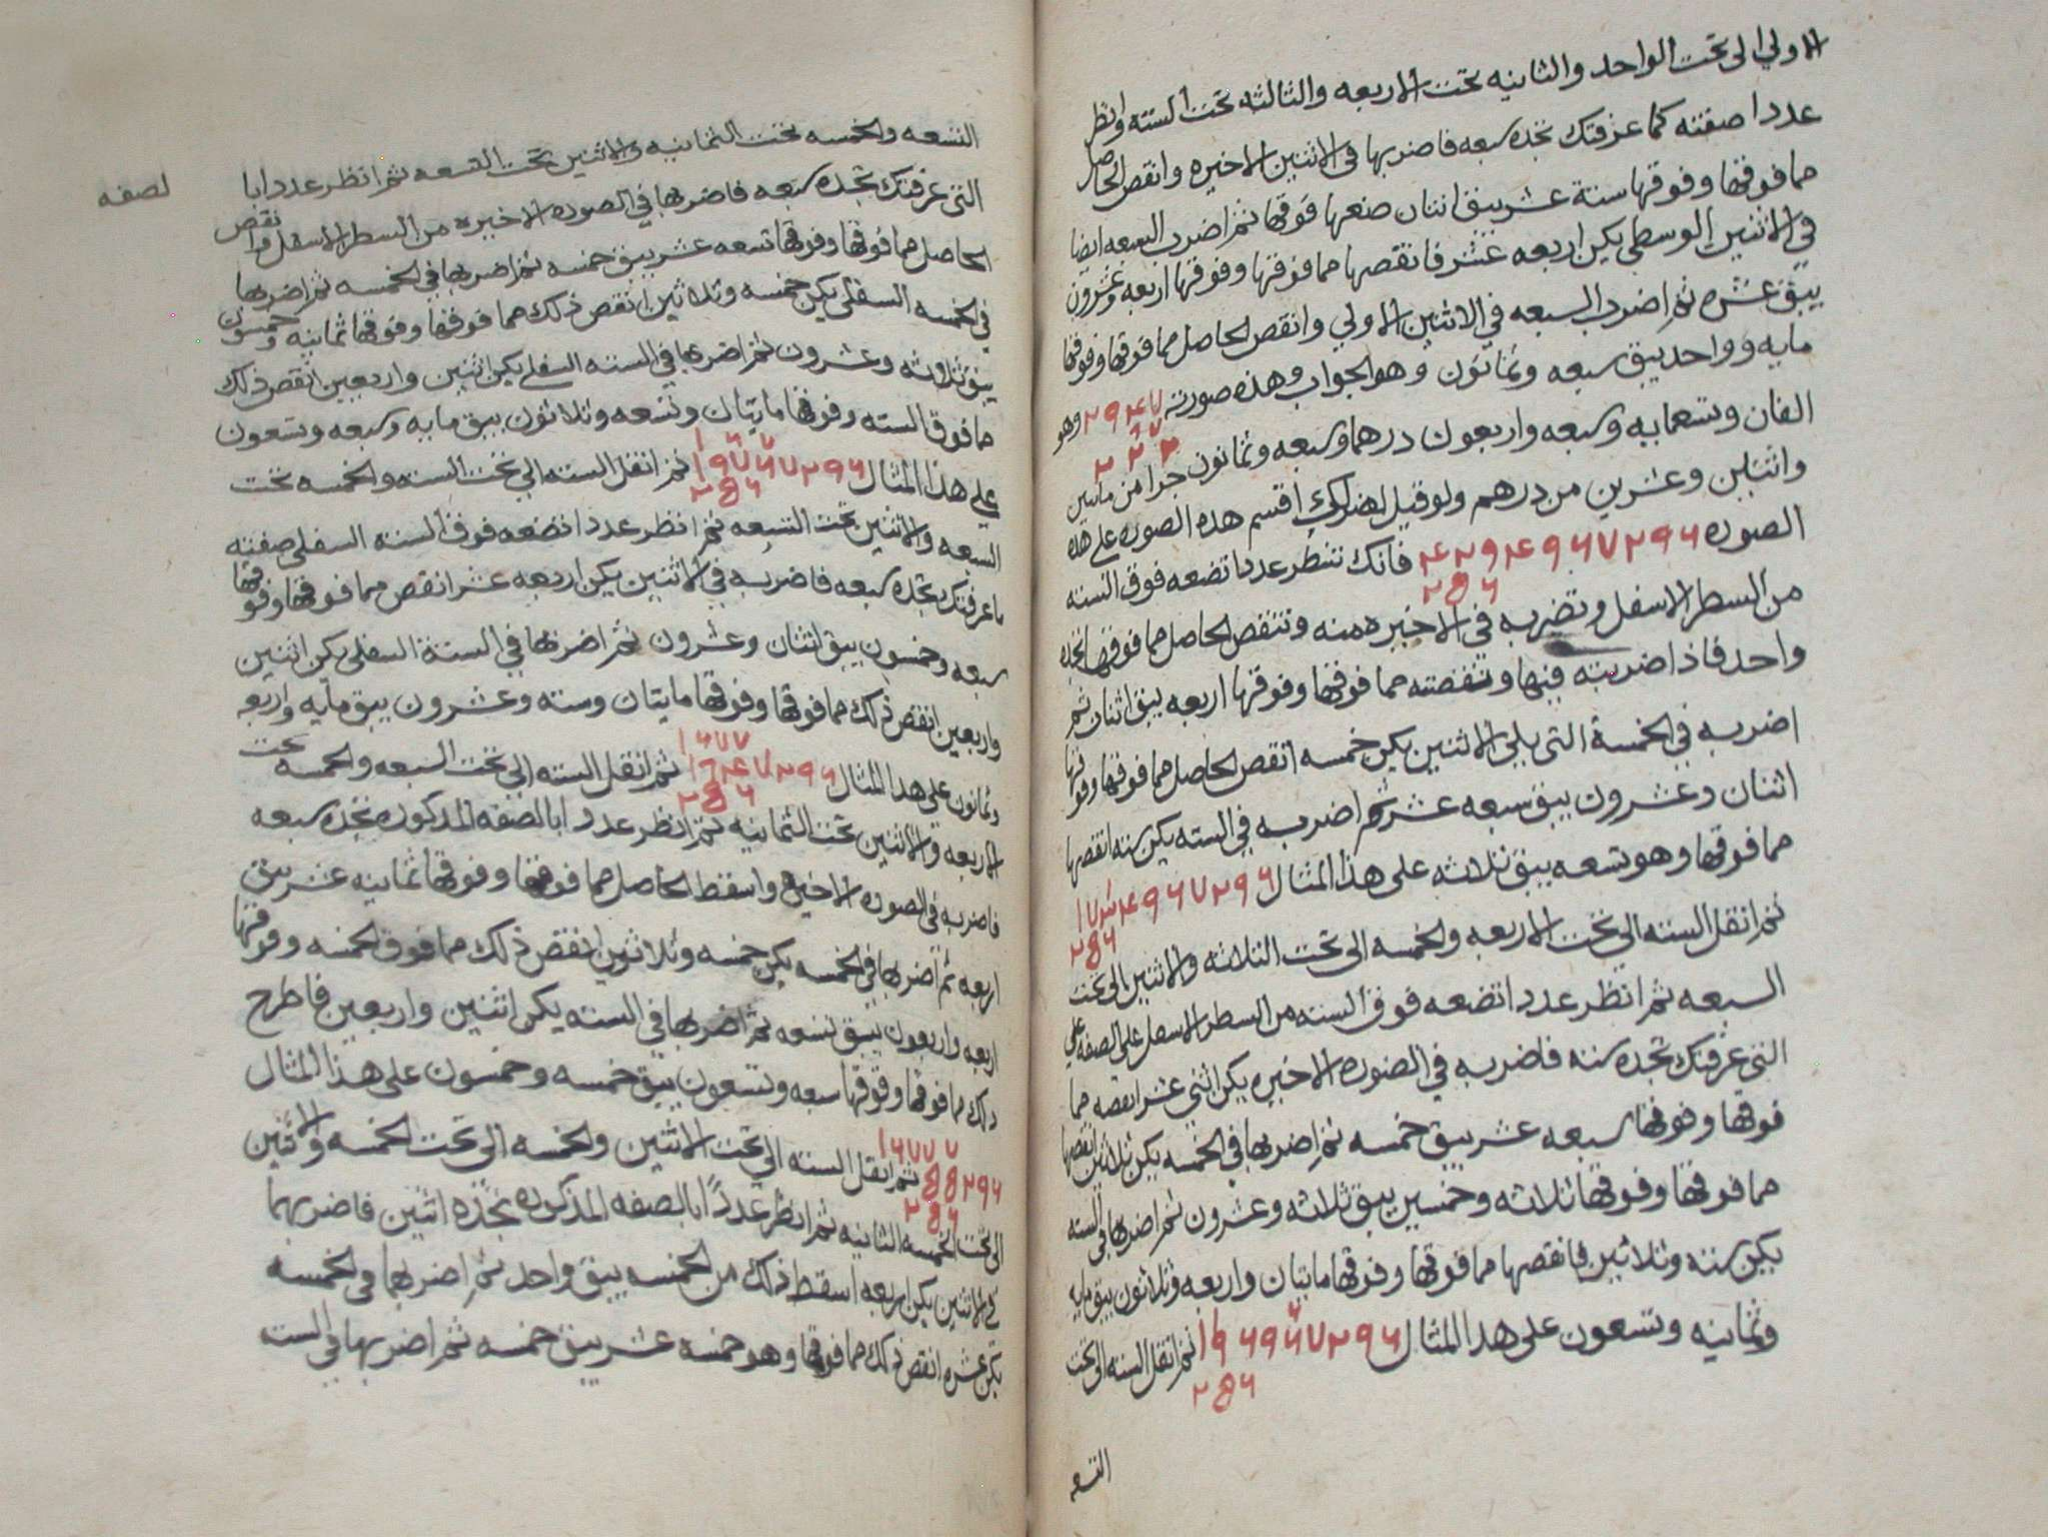 الاولي الى تحت الواحد والثانيه تحت الاربعه والثالثه تحت السته وانظر
عددا صفته كما عرفتك تجده سبعه فاضربها في الاثنين الاخيره وانقص الحاصل
مما فوقها وفوقها ستة عشر يبق اثنان ضعها فوقها ثم اضرب السبعه ايضا
في الاثنين الوسطي يكن اربعه عشر فانقصها مما فوقها وفوقها اربعه وعشرون
يبق عشره ثم اضرب السبعه في الاثنين الاولي وانقص الحاصل مما فوقها وفوقها
مايه وواحد يبق سبعه وثمانون وهو الجواب وهذه صورته وهو
الفان وتسعمايه وسبعه واربعون درهما وسبعه وثمانون جزا من مأتين
واثنين وعشرين من درهم ولو قيل لك اقسم هذه الصوره على هذه
الصوره فانك تنظر عددا تضعه فوق السته
من السطر الاسفل وتضربه في الاخيره منه وتنقص الحاصل مما فوقها تجده
واحد فاذا ضربته فيها ونقصته مما فوقها وفوقها اربعه يبق اثنان ثم
اضربه في الخمسة التي يلي الاثنين يكن خمسه انقص الحاصل مما فوقها وفوقها
اثنان وعشرون يبق سبعه عشر ثم اضربه في السته يكن سته انقصها
مما فوقها وهو تسعه يبق ثلاثه على هذا المثال
ثم انقل السته الي تحت الاربعه والخمسه الى تحت الثلاثه والاثنين الى تحت
السبعه ثم انظر عددا تضعه فوق السته من السطر الاسفل على الصفه
التي عرفتك تجده سته فاضربه في الصوره الاخيره يكن اثني عشر انقصه مما
فوقها وفوقها سبعه عشر يبق خمسه ثم اضربها في الخمسه يكن ثلاثين انقصها
مما فوقها وفوقها ثلاثه وخمسين يبق ثلاثه وعشرون ثم اضربها في السته
يكن سته وثلاثين فانقصها مما فوقها وفوقها مايتان واربعه وثلاثون يبق مايه
وثمانيه وتسعون على هذا المثال ثم انقل السته الى تحت
التسعه والخمسه تحت الثمانيه والاثنين تحت التسعه ثم انظر عددا بالصفه
التي عرفتك تجده سبعه فاضربها في الصوره الاخيره من السطر الاسفل وانقص
الحاصل مما فوقها وفوقها تسعه عشر يبق خمسه ثم اضربها في الخمسه ثم اضربها
في الخمسه السفلى يكن خمسه وثلاثين انقص ذلك مما فوقها وفوقها ثمانيه وخمسون
يبق ثلاثه وعشرون ثم اضربها في السته السفلي يكن اثنين واربعين انقص ذلك
مما فوق السته وفوقها مايتان وتسعه وثلاثون يبق مايه وسبعه وتسعون
على هذا المثال ثم انقل السته الي تحت السته والخمسه تحت
السبعه والاثنين تحت التسعه ثم انظر عددا تضعه فوق السته السفلى صفته
ما عرفتك تجده سبعه فاضربه في الاثنين يكن اربعه عشر انقص مما فوقها وفوقها
سبعه وخمسون يبق اثنان وعشرون ثم اضربها في الستة السفلى يكن اثنين
واربعين انقص ذلك مما فوقها وفوقها مايتان وسته وعشرون يبق مايه واربعه
وثمانون على هذا المثال ثم انقل السته الي تحت السبعه والخمسه تحت
الاربعه والاثنين تحت الثمانيه ثم انظر عددا بالصفه المذكوره تجده سبعه
فاضربه في الصوره الاخيره واسقط الحاصل مما فوقها وفوقها ثمانيه عشر يبق
اربعه ثم اضربها في الخمسه يكن خمسه وثلاثون انقص ذلك مما فوق الخمسه وفوقها
اربعه واربعون يبق تسعه ثم اضربها في السته يكن اثنين واربعين فاطرح
ذلك مما فوقها وفوقها سبعه وتسعون يبق خمسه وخمسون على هذا المثال
ثم انقل السته الي تحت الاثنين والخمسه الى تحت الخمسه والاثنين
الى تحت الخمسه الثانيه ثم انظر عددًا بالصفه المذكوره تجده اثنين فاضربهما
في الاثنين يكن اربعه اسقط ذلك من الخمسه يبق واحد ثم اضربهما في الخمسه
يكن عشره انقص ذلك مما فوقها وهو خمسه عشر يبق خمسه ثم اضربها في الست